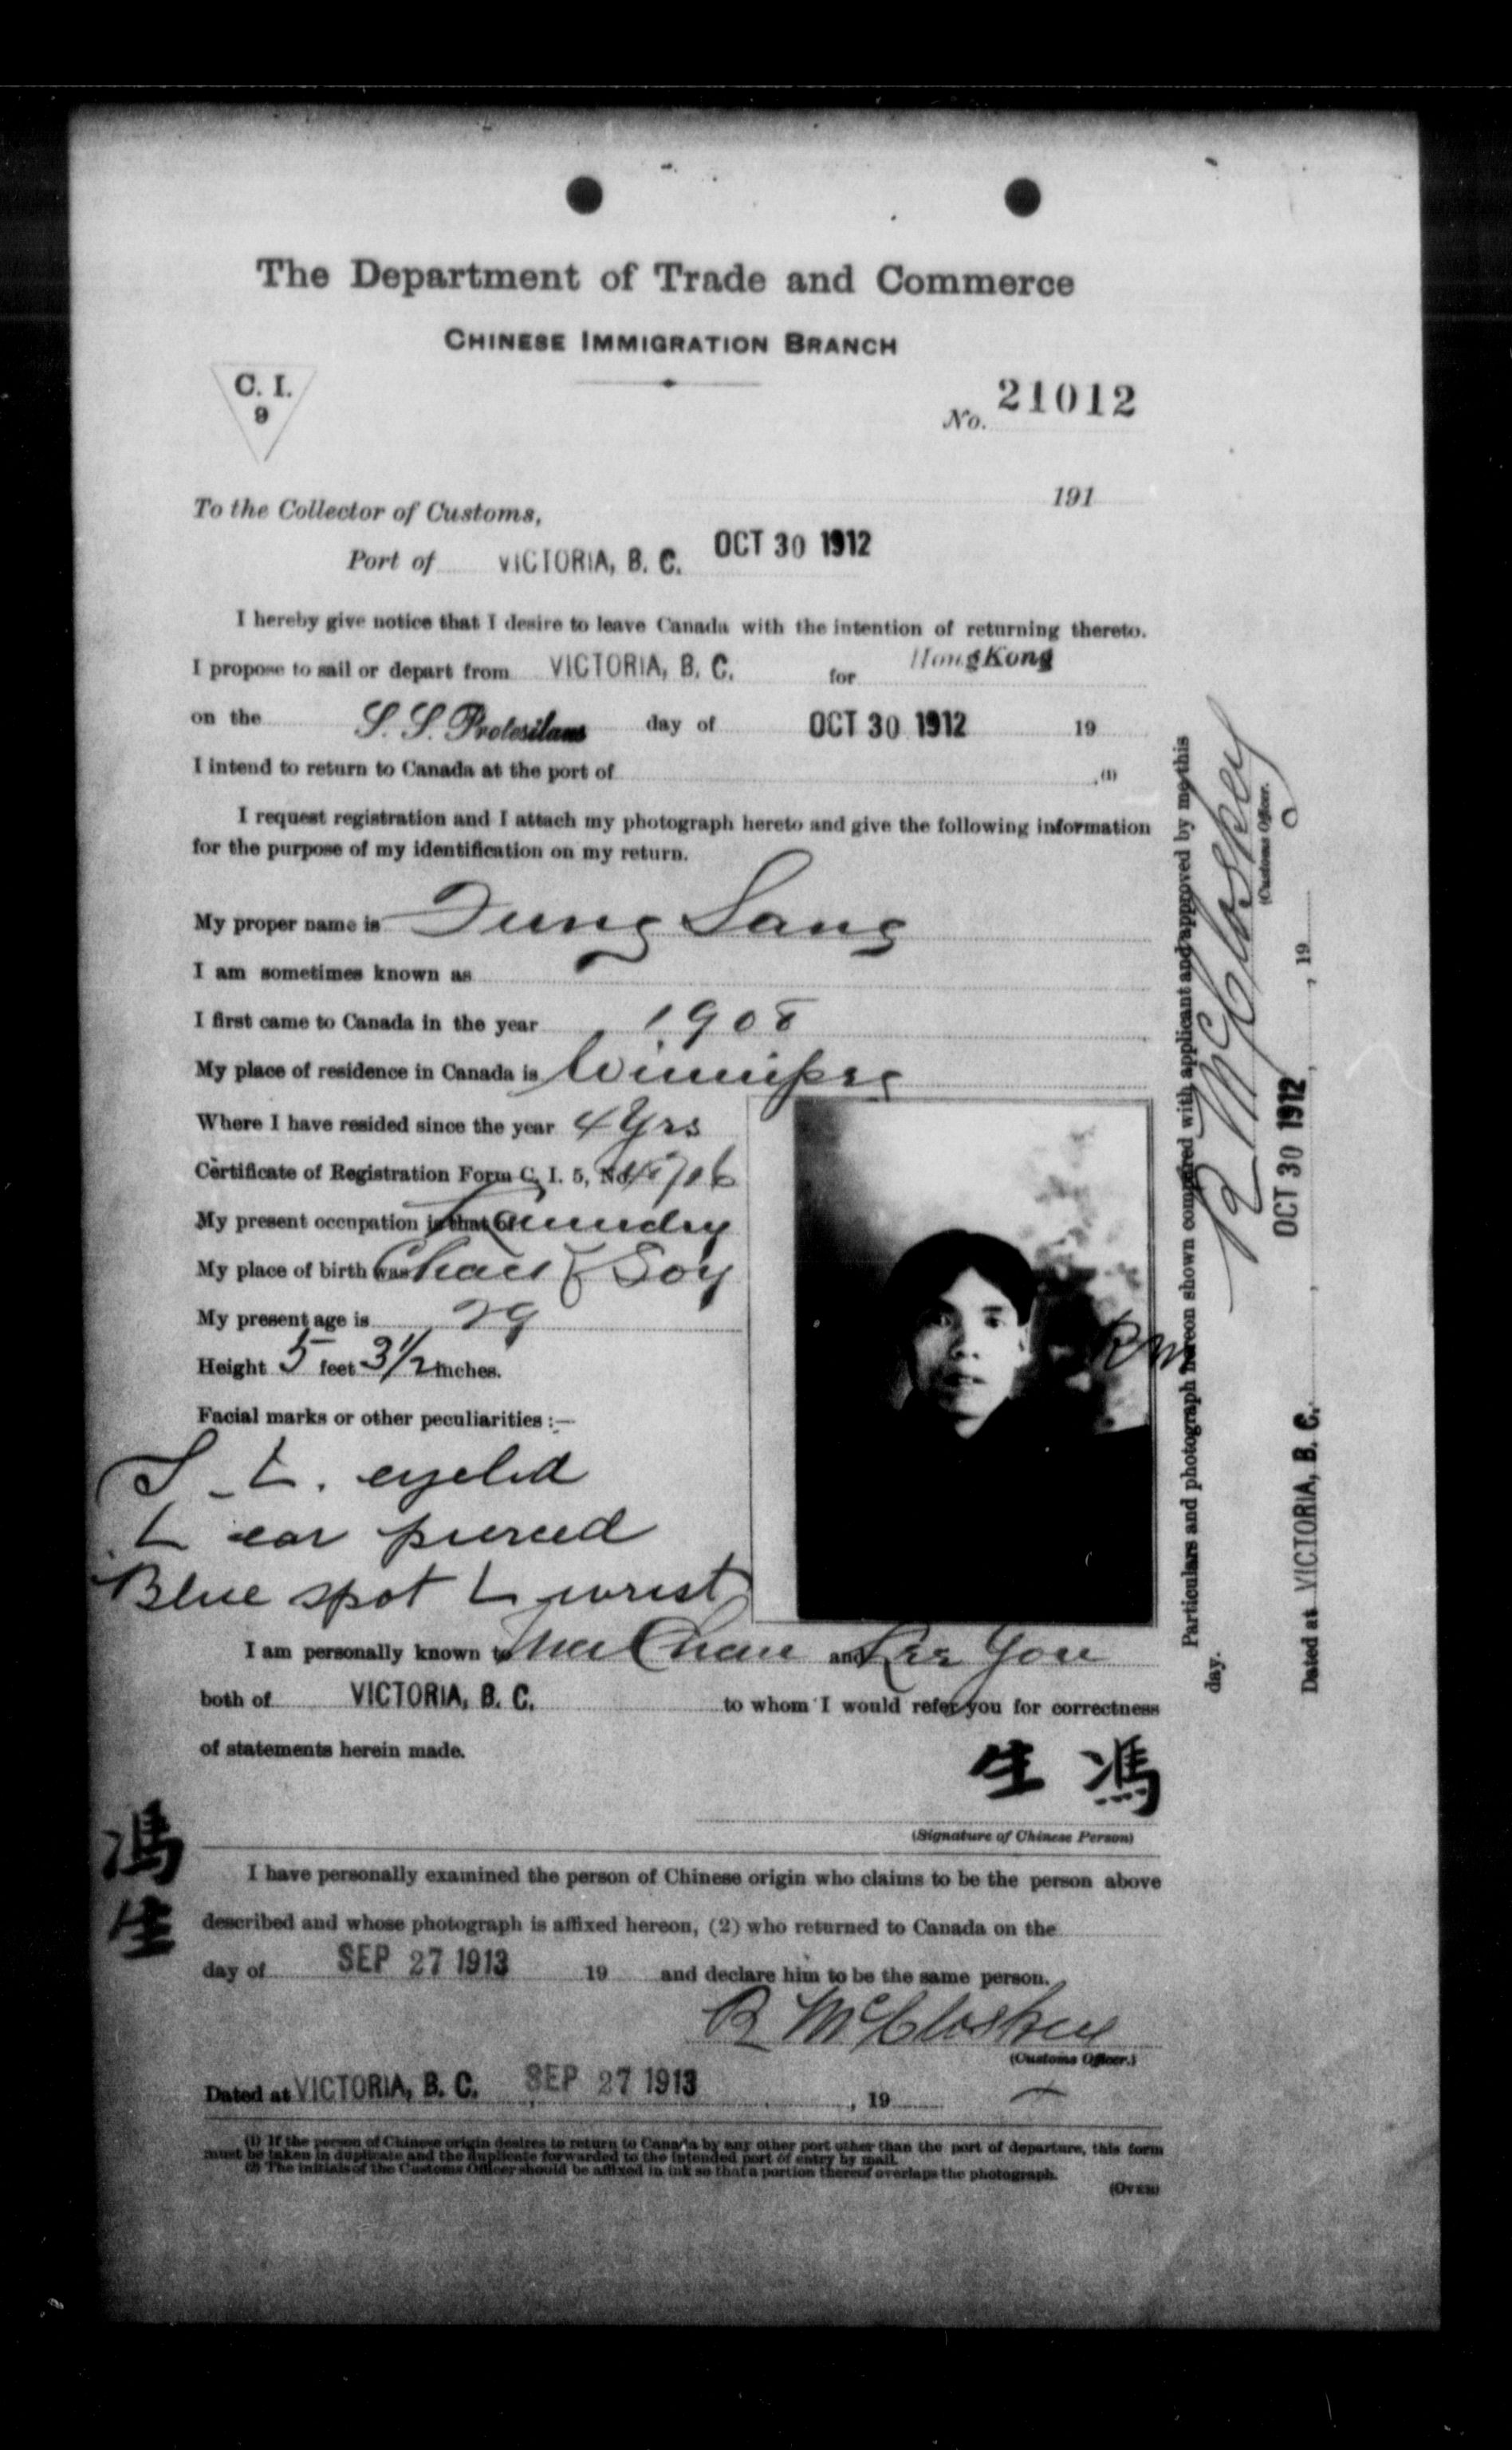 The Department of Trade and Commerce
CHINESE IMMIGRATION BRANCH
C. I.
9
No. 21012
191
To the Collector of Customs,
Port of VICTORIA, B. C. OCT 30 1912
I hereby give notice that I desire to leave Canada with the intention of returning thereto.
I propose to sail or depart from VICTORIA, B. C. for HongKong
on the S. S. Protesilaus day of OCT 30 1912 19
I intend to return to Canada at the port of .(1)
I request registration and I attach my photograph hereto and give the following information
for the purpose of my identification on my return.
My proper name is Fung Sang
I am sometimes known as
I first came to Canada in the year 1908
My place of residence in Canada is Winnipeg
Where I have resided since the year 4 Yrs
Certificate of Registration Form C. I. 5, No.
My present occupation is that of Laundry
My place of birth was Soy
My present age is 29
Height 5 feet 3 1/2 inches.
Facial marks or other peculiarities :—
S L. eyelid
L ear pierced
Blue spot L wrist
RM
I am personally known to Chan and Lee You
both of VICTORIA, B. C. to whom I would refer you for correctness
of statements herein made.
生 馮
(Signature of Chinese Person)
馮
生
I have personally examined the person of Chinese origin who claims to be the person above
described and whose photograph is affixed hereon, (2) who returned to Canada on the
day of SEP 27 1913 19 and declare him to be the same person.
R McCloskey
(Customs Officer.)
Dated at VICTORIA, B. C. SEP 27 1913 , 19
(1) If the person of Chinese origin desires to return to Canada by any other port other than the port of departure, this form
must be taken in duplicate and the duplicate forwarded to the intended port of entry by mail.
(2) The initials of the Customs Officer should be affixed in ink so that a portion thereof overlaps the photograph.
(OVER)
Particulars and photograph hereon shown compared with applicant and approved by me this
day.
R McCloskey
(Customs Officer.)
Dated at VICTORIA, B. C. , OCT 30 1912 , 19